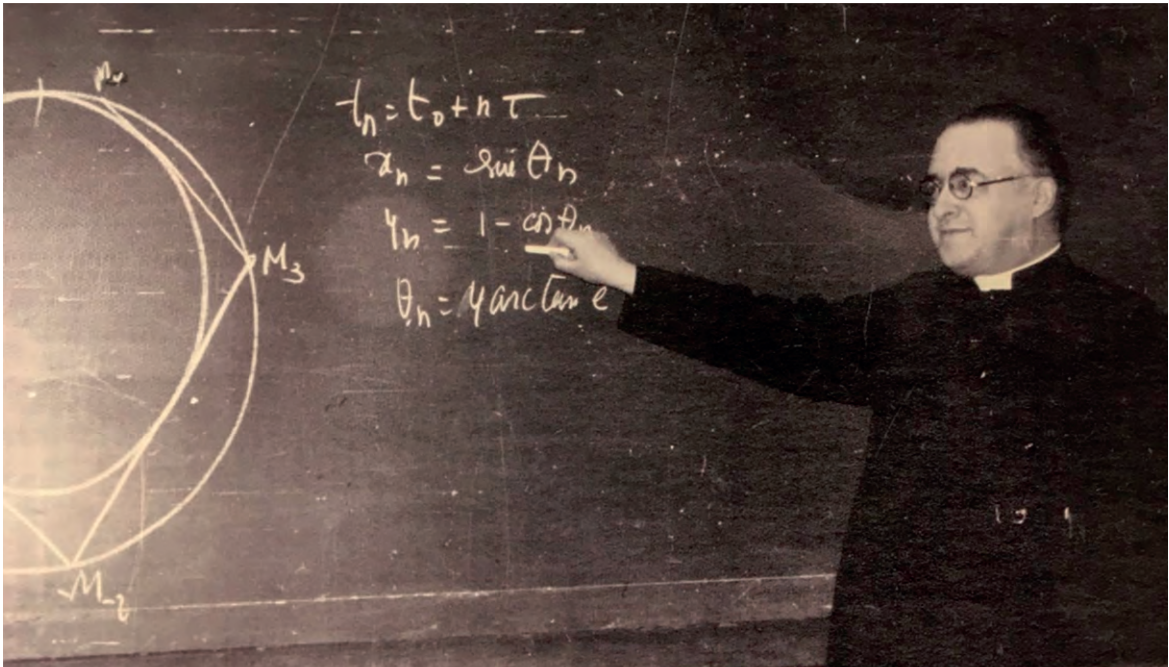 M₃
M₋₂
tₙ = t₀ + n τ
xₙ = sin θₙ
yₙ = 1 - cos θₙ
θₙ = 4 arc tan e